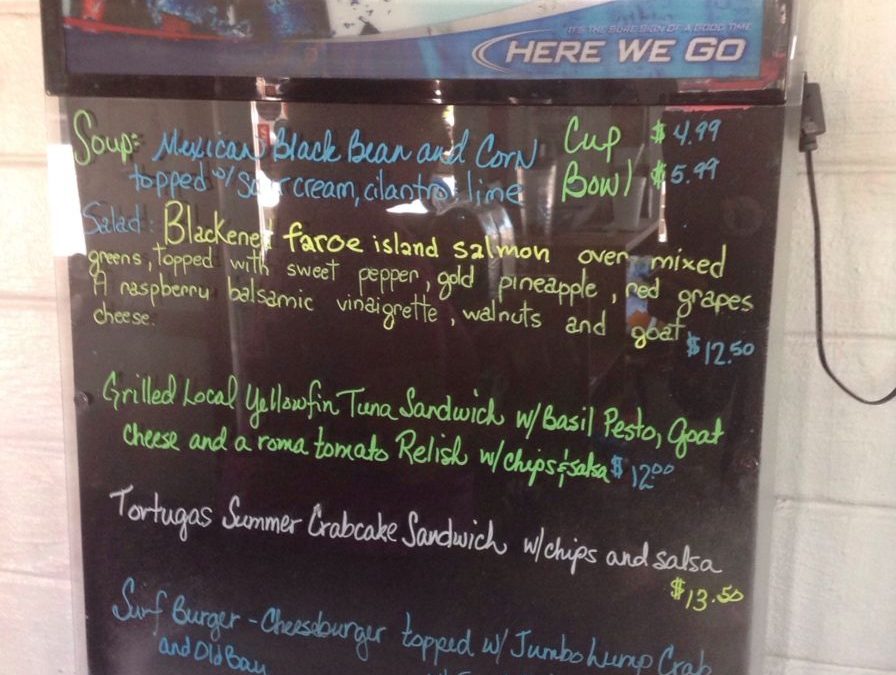 IT'S THE SURE SIGN OF A GOOD TIME
HERE WE GO
Soup: Mexican Black Bean and Corn Cup $4.99
topped w/ sour cream, cilantro lime Bowl $5.99
Salad: Blackened faroe island salmon over mixed
greens, topped with sweet pepper, gold pineapple, red grapes
A raspberry balsamic vinaigrette, walnuts and goat
cheese. $12.50
Grilled Local Yellowfin Tuna Sandwich w/ Basil Pesto, Goat
cheese and a roma tomato Relish w/chips & salsa $12.00
Tortugas Summer Crabcake Sandwich w/chips and salsa
$13.50
Surf Burger - Cheeseburger topped w/ Jumbo Lump Crab
and Old Bay